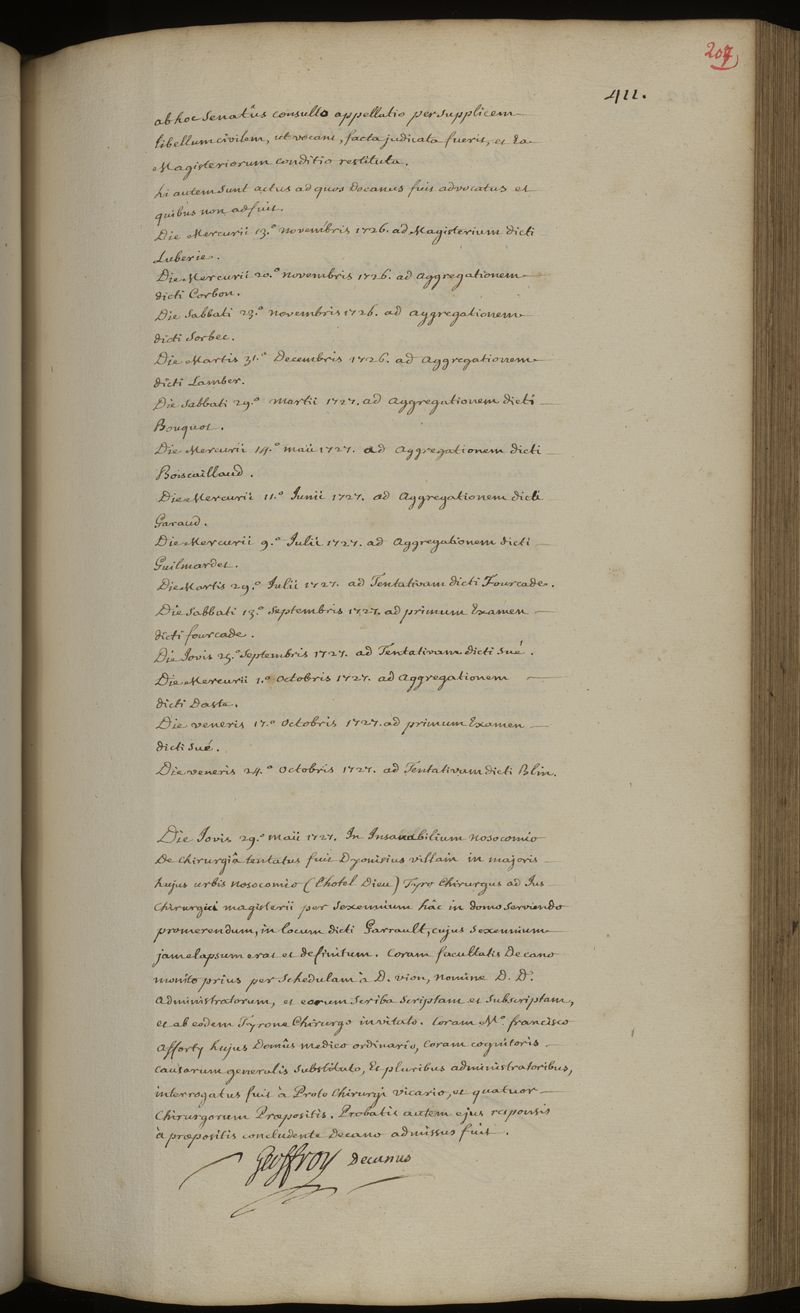 207
411.
ab hoc Senatûs consulto appellatio per supplicem
libellum civilem, ut vocant, facta judicata fuerit, et Ea
Magisteriorum conditio restituta.
hi autem sunt actus ad quos Decanus fuit advocatus et
quibus non adfuit.
Die Mercurii 13.° novembris 1726. ad Magisterium dicti
Luberie.
Die Mercurii 20.° novembris 1726. ad aggregationem
dicti Corbon.
Die Sabbati 23.° novembris 1726. ad aggregationem
dicti Sorbec.
Die Martis 31.° Decembris 1726. ad aggregationem
dicti Lamber.
Die Sabbati 29.° Martii 1727. ad aggregationem dicti
Bouquot.
Die Mercurii 14.° maii 1727. ad aggregationem dicti
Boiscaillaud.
Die Mercurii 11.° Junii 1727. ad aggregationem dicti
Garaud.
Die Mercurii 9.° Julii 1727. ad aggregationem dicti
Guilmardet.
Die Martis 29.° Julii 1727. ad Tentativam dicti Fourcade.
Die Sabbati 13.° Septembris 1727. ad primum Examen
dicti fourcade.
Die Jovis 25.° Septembris 1727. ad Tentativam dicti Sué.
Die Mercurii 1.° Octobris 1727. ad aggregationem
dicti Daste.
Die veneris 17.° Octobris 1727. ad primum Examen
dicti Sué.
Die veneris 24.° Octobris 1727. ad Tentativam dicti Blin.
Die Jovis 29.° Maii 1727. In Insanabilium nosocomio
De chirurgiâ tentatus fuit Dyonisius villain in majoris
hujus urbis nosocomio (l'hotel Dieu) Tyro Chirurgus ad Jus
Chirurgici magisterii per Sexennium hâc in domo serviendo
promerendum, in locum dicti Garrault, cujus Sexennium
jam elapsum erat et definitum. Coram facultatis Decano
monito prius per Schedulam à D. vion, nomine D. D.
administratorum, et eorum Scriba Scriptam et Subscriptam,
et ab eodem Tyrone Chirurgo invitato. Coram M.° francisco
Afforty hujus Domûs medico ordinario, Coram cognitoris
causarum generalis Substituto, Et pluribus administratoribus,
interrogatus fuit à Proto Chirurgi vicario, et quatuor
Chirurgorum Præpositis. Probatis autem ejus responsis
à præpositis concludente Decano admissus fuit.
Geoffroy Decanus